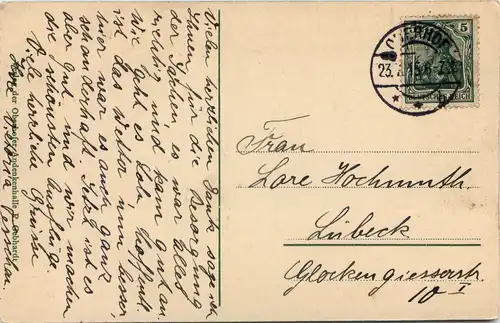 Vielen herzlichen Dank sage ich
Ihnen für die Besorgung
der Sachen es war alles
richtig und kam gut an.
Wie geht es Lola, hoffentl.
ist das Wetter nun besser,
hier war es auch ganz
schauderhaft. Jetzt ist es
aber gut und wir machen
die schönsten Ausflüge.
Viele herzliche Grüsse
Ihre
der Oberhofer Andenkenhalle R.
OBERHOF
23.
5
Frau
Lore Hochmuth.
Lübeck
Glockengiesserstr.
10 I